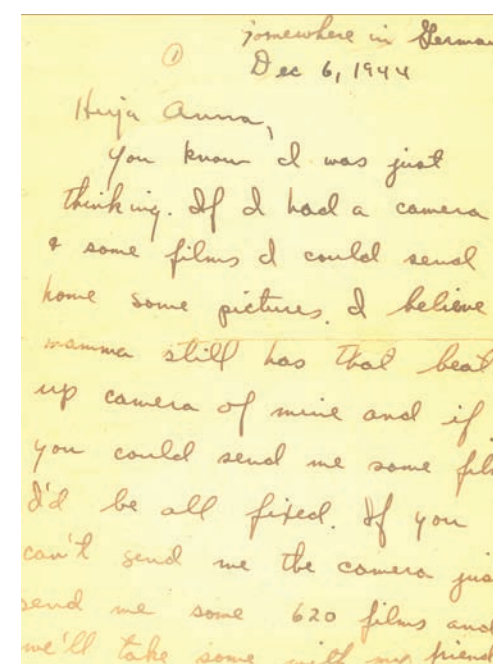 somewhere in German
①
Dec 6, 1944
Heija Anna,
you know I was just
thinking. If I had a camera
& some films I could send
home some pictures. I believe
mamma still has that beat
up camera of mine and if
you could send me some fil
I'd be all fixed. If you
can't send me the camera jus
send me some 620 films and
we'll take some with my friend